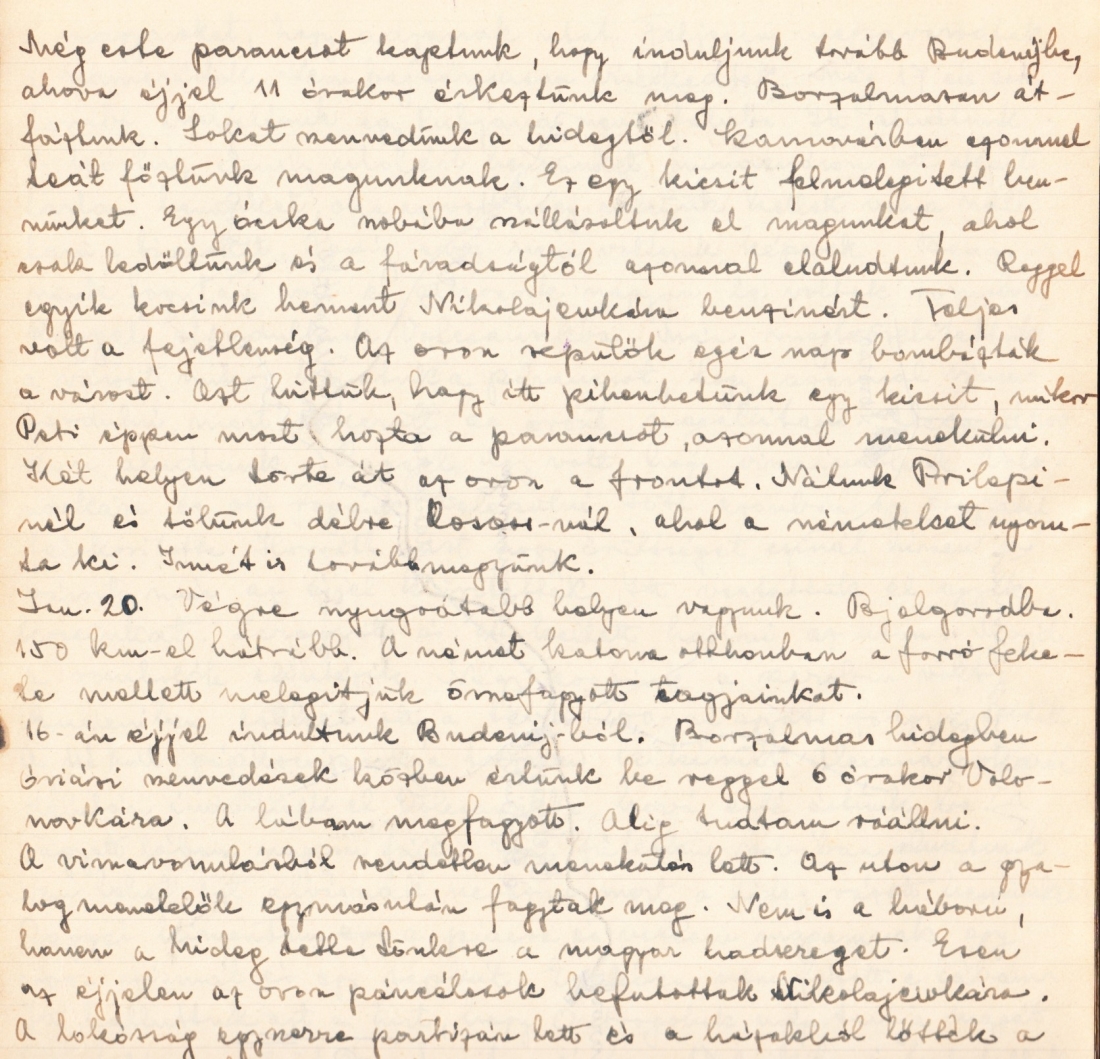 Még este parancsot kaptunk, hogy induljunk tovább Budenijbe,
ahova éjjel 11 órakor érkeztünk meg. Borzalmasan át-
fáztunk. Sokat szenvedünk a hidegtől. Szamovárban azonnal
teát főztünk magunknak. Ez egy kicsit felmelegitett ben-
nünket. Egy ócska szobába szállásoltuk el magunkat, ahol
csak ledőltünk és a fáradságtól azonnal elaludtunk. Reggel
egyik kocsink bement Nikolajewkára benzinért. Teljes
volt a fejetlenség. Az orosz repülők egész nap bombázták
a várost. Azt hittük, hogy itt pihenhetünk egy kicsit, mikor
Peti éppen most hozta a parancsot, azonnal menekülni.
Két helyen törte át az orosz a frontot. Nálunk Prilepi-
nél és tőlünk délre Rososs-nál, ahol a németeket nyom-
ta ki. Ismét is továbbmegyünk.
Jan. 20. Végre nyugodtabb helyen vagyunk. Bjelgorodba.
150 km-el hátrább. A német katona otthonban a forró feke-
te mellett melegitjük össefagyott tagjainkat.
16-án éjjel indultunk Budenij-ból. Borzalmas hidegben
óriási szenvedések közben értünk be reggel 6 órakor Volo-
novkára. A lábam megfagyott. Alig tudtam ráállni.
A visszavonulásból rendetlen menekülés lett. Az uton a gya-
log menetelők egymásután fagytak meg. Nem is a háború,
hanem a hideg tette tönkre a magyar hadsereget. Ezen
az éjjelen az orosz páncélosok befutottak Nikolajewkára.
A lakósság egyszerre partizán lett és a házakból lőtték a